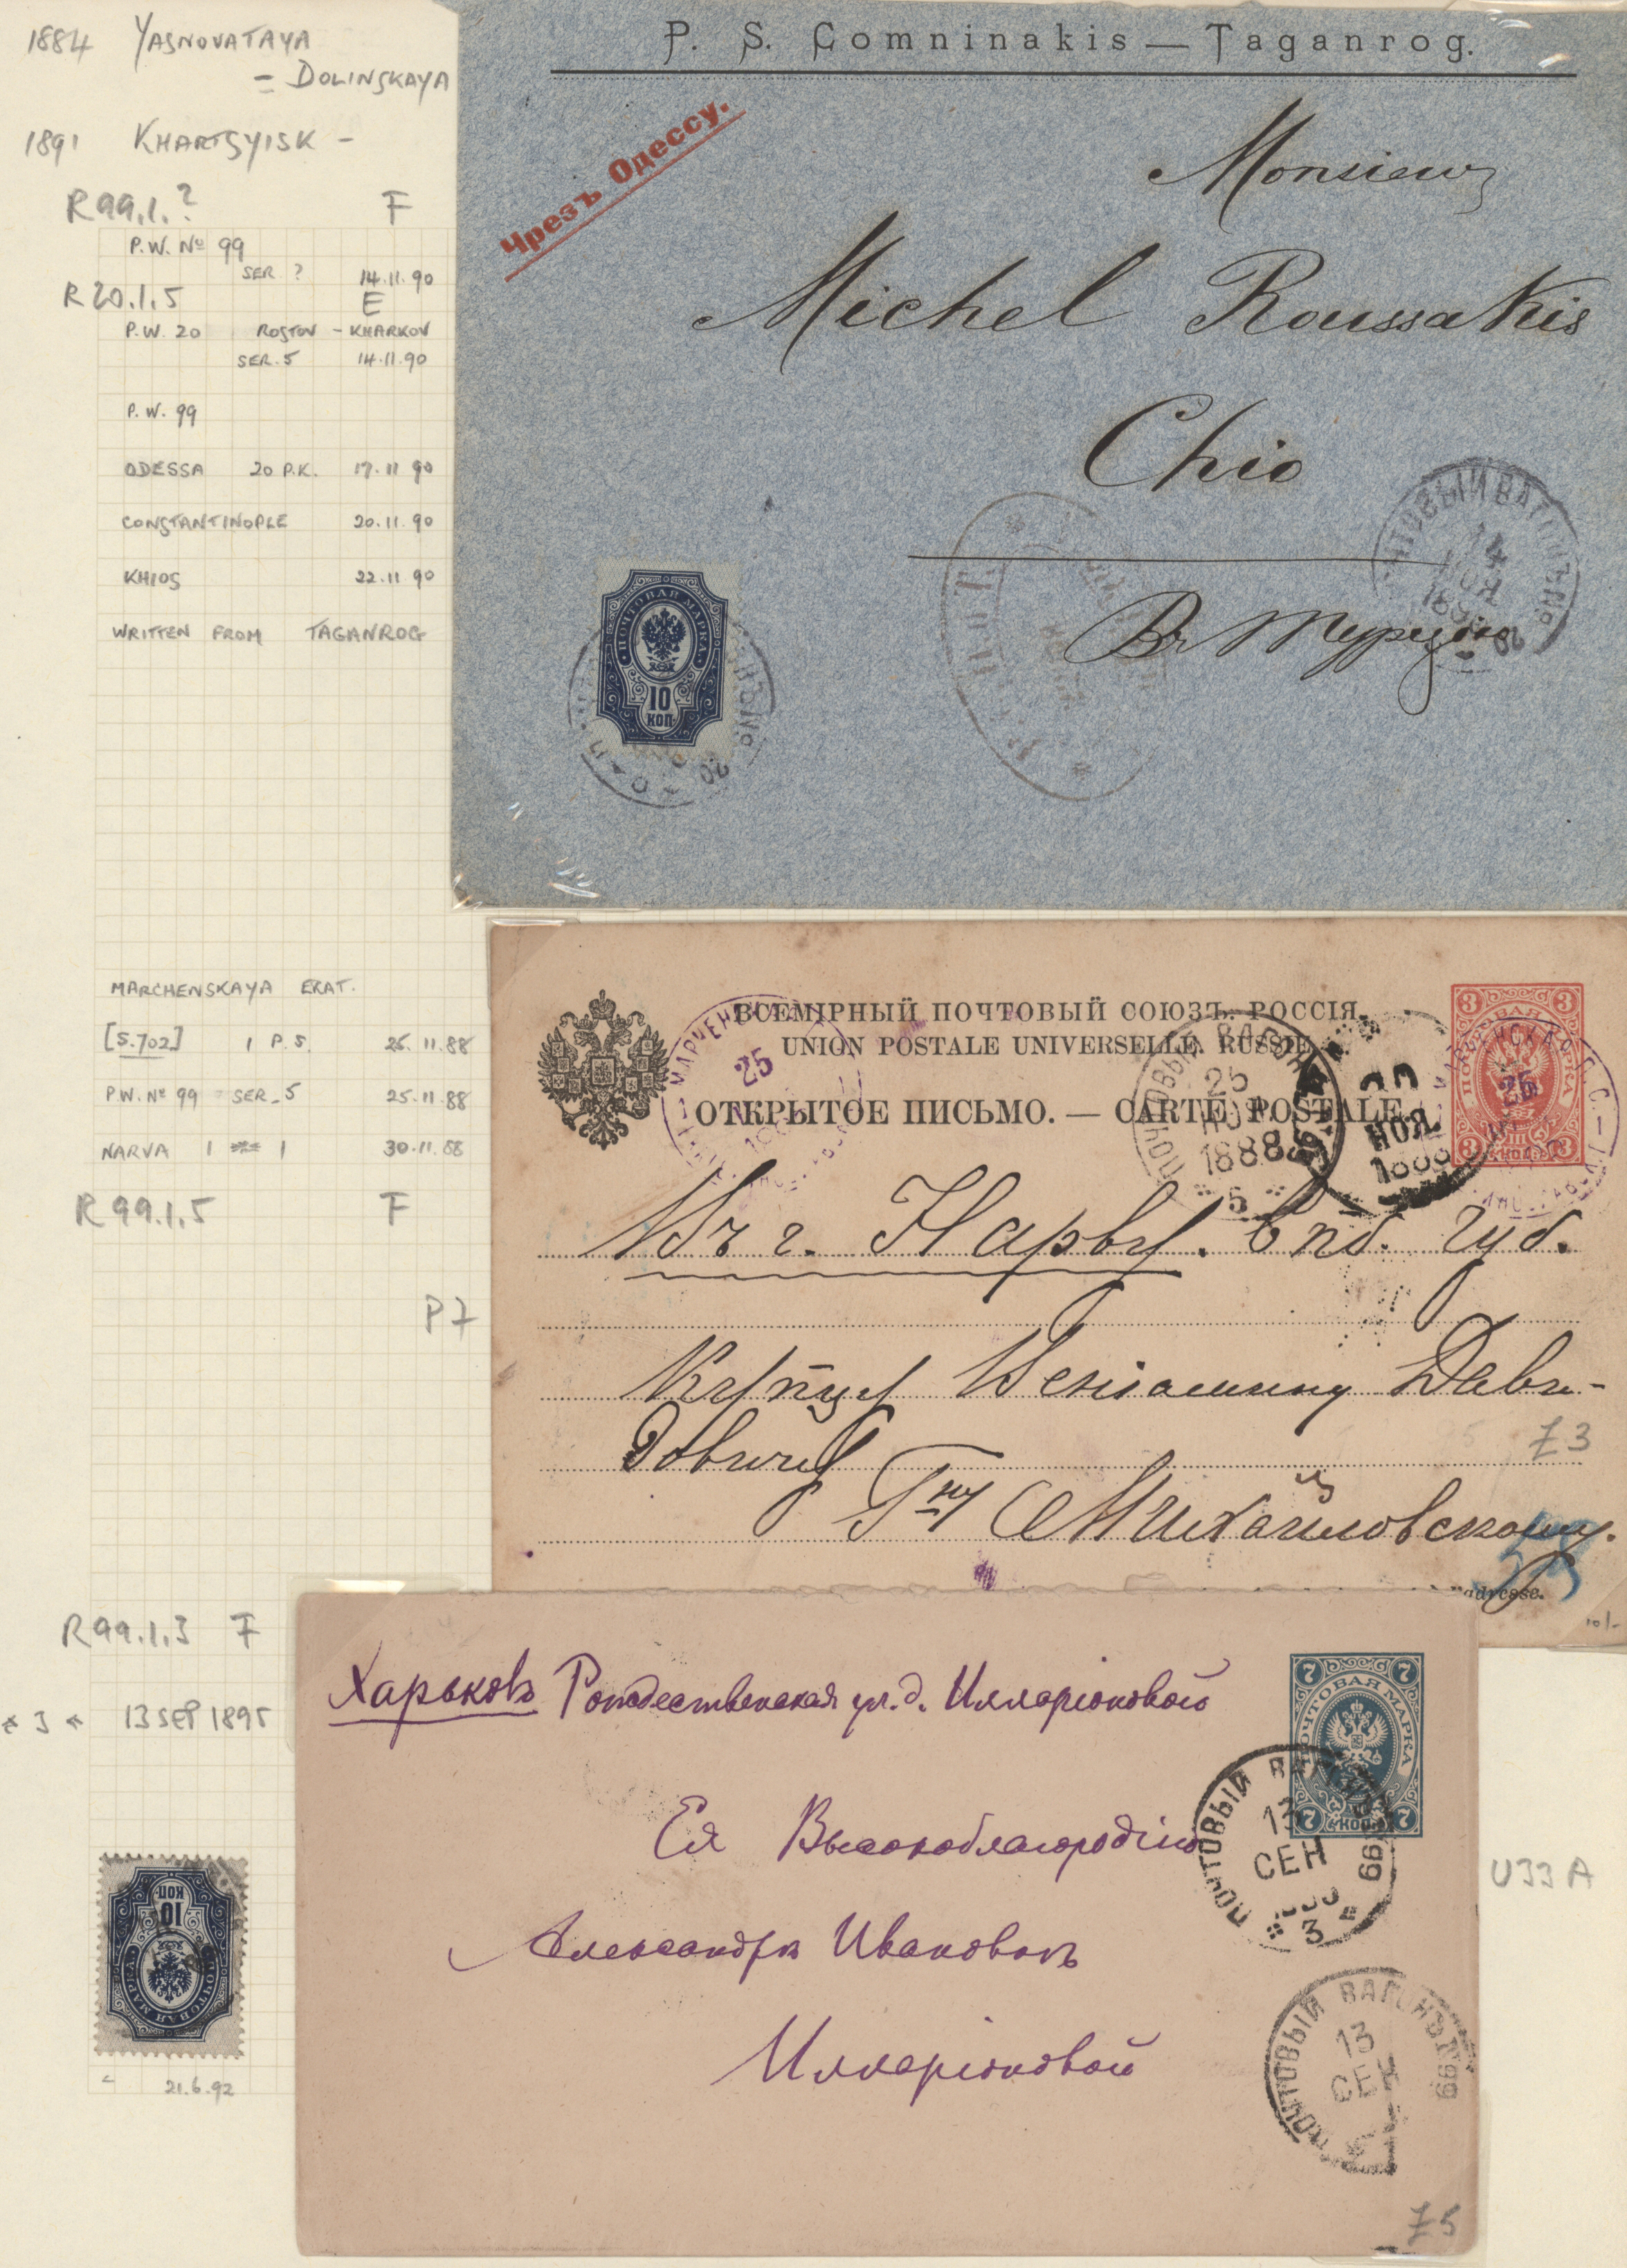 1884 YASNOVATAYA
= DOLINSKAYA
1891 KHARTSYISK -
R99.1.? F
P.W. Nº 99
SER ? 14.11.90
R20.1.5 E
P.W. 20 ROSTOV - KHARKOV
SER. 5 14.11.90
P.W. 99
ODESSA 20 P.K. 17.11 90
CONSTANTINOPLE 20.11.90
KHIOS 22.11 90
WRITTEN FROM TAGANROG
P. S. Comninakis — Taganrog.
Чрезъ Одессу.
Monsieur
Michel Roussakis
Chio
Въ Турцію
ПОЧТОВАЯ МАРКА
10
КОП
ПОЧТОВЫЙ ВАГОНЪ №
14
20
MARCHENSKAYA EKAT.
[S.702] 1 P.S. 25.11.88
P.W. Nº 99 SER. 5 25.11.88
NARVA 1 1 30.11.88
R99.1.5 F
P7
ВСЕМІРНЫЙ ПОЧТОВЫЙ СОЮЗЪ. РОССІЯ.
UNION POSTALE UNIVERSELLE. RUSSIE.
ОТКРЫТОЕ ПИСЬМО. — CARTE POSTALE.
25
25
НОЯ
1888
5
НОЯ
1888
25
3 3
ПОЧТОВАЯ МАРКА
3 КОП. 3
Въ г. Нарву. Спб. губ.
Купцу Веніамину Дави-
довичу
Гну Михайловскому.
adresse.
£3
10/-
R99.1.3 F
* 3 * 13 SEP 1895
Харьковъ Рождественская ул. д. Илларіоновой
Ея Высокоблагородію
Александрѣ Ивановнѣ
Илларіоновой
7 7
ПОЧТОВАЯ МАРКА
7 КОП. 7
ПОЧТОВЫЙ ВАГОНЪ № 99
13
СЕН
3
ПОЧТОВЫЙ ВАГОНЪ № 99
13
СЕН
U33A
£5
ПОЧТОВАЯ МАРКА
10
КОП
21.6.92